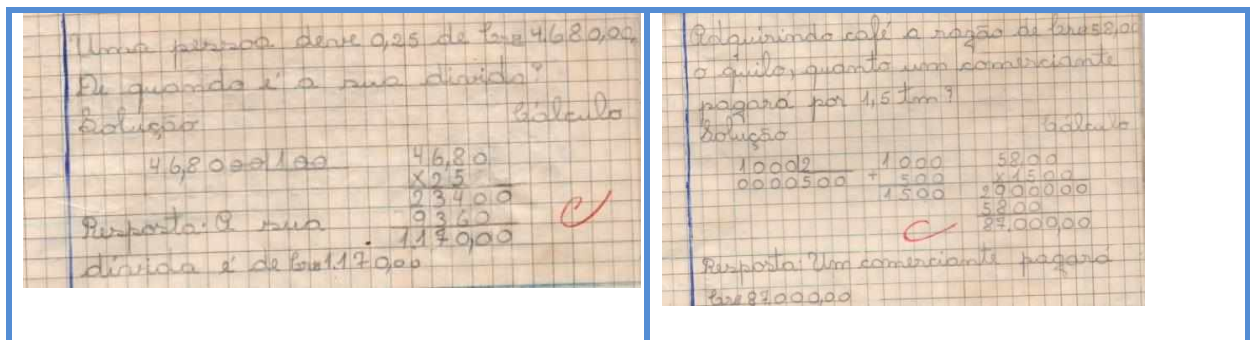 Uma pessoa deve 0,25 de Cr$ 4.680,00.
De quando é a sua divida?
Solução Cálculo
46,8000 100 46,80
X 25
23400
9360
1170,00
Resposta: A sua
divida é de Cr$ 1.170,00
Adquirindo café a razão de Cr$ 58,00
o quilo, quanto um comerciante
pagará por 1,5 tm?
Solução Cálculo
1000 2 1000 58,00
0000500 + 500 x1500
1500 2900000
5800
87.000,00
Resposta: Um comerciante pagará
Cr$ 87.000,00